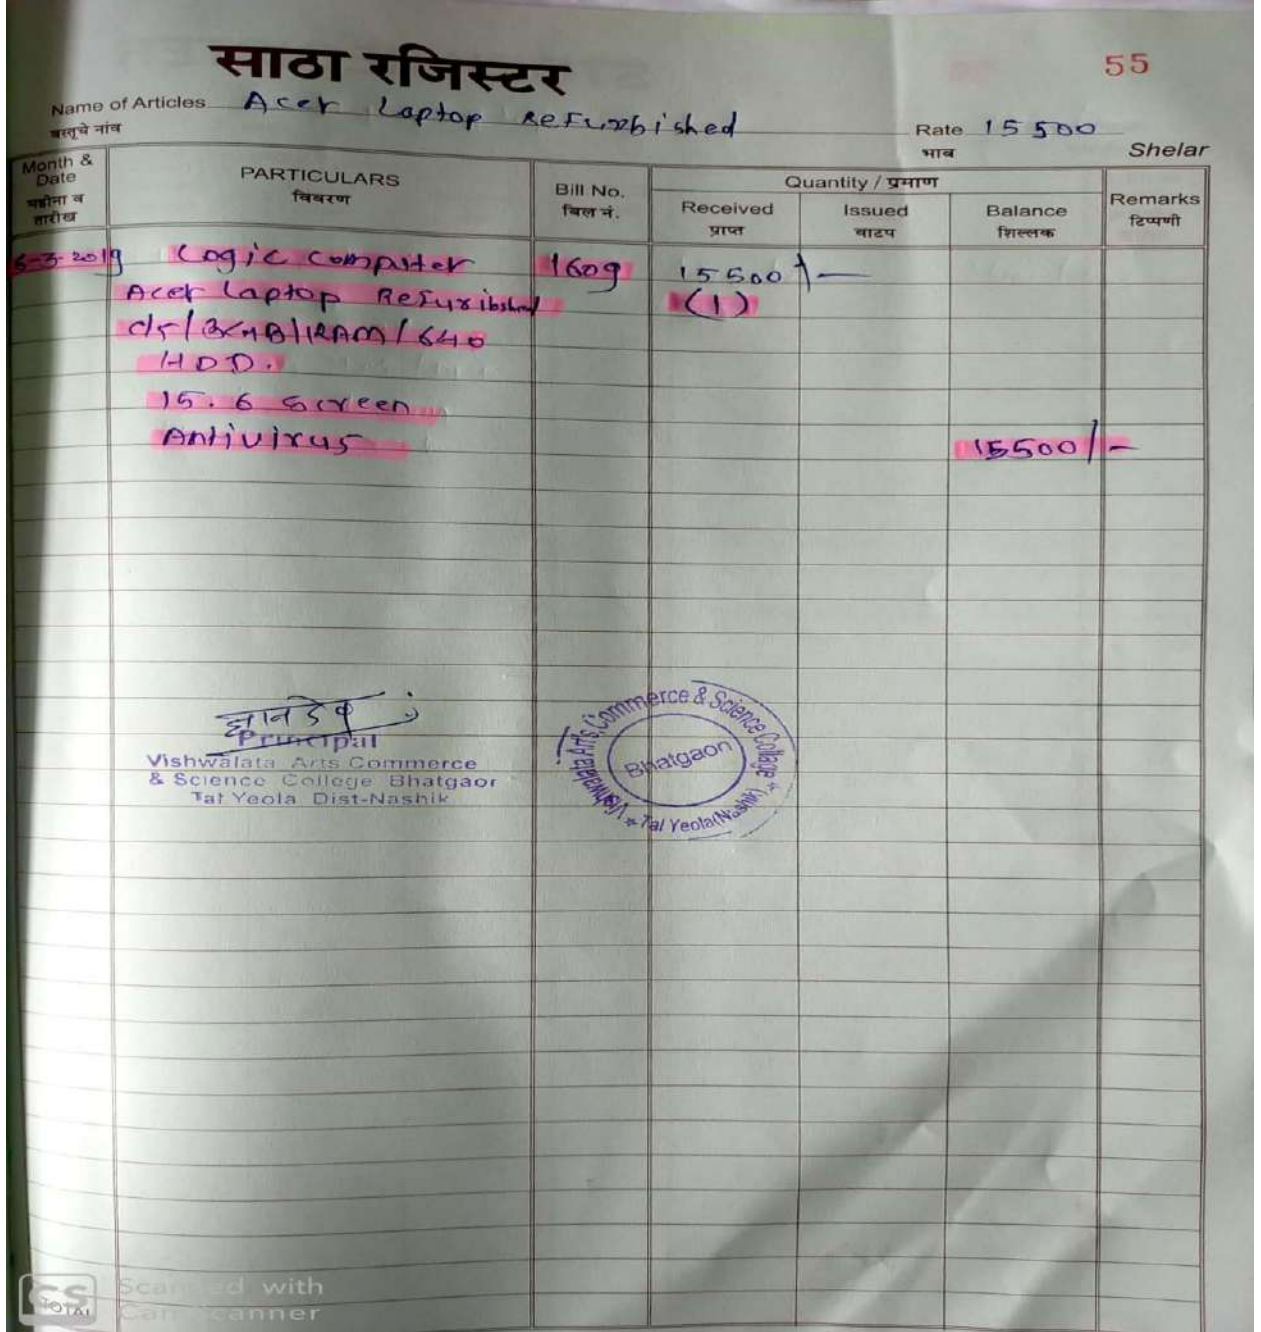 साठा रजिस्टर
55
Name of Articles Acer Laptop Refurbished
वस्तूचे नांव
Rate 15500
भाव
Shelar
Month & Date
महीना व तारीख
PARTICULARS
विवरण
Bill No.
बिल नं.
Quantity / प्रमाण
Received
प्राप्त
Issued
वाटप
Balance
शिल्लक
Remarks
टिप्पणी
6-3-2019 Logic computer 1609 15500/-
Acer Laptop Refuribshed (1)
640
HDD.
15.6 Screen
Antivirus 15500/-
Principal
Vishwalata Arts Commerce
& Science College Bhatgaon
Tal Yeola Dist-Nashik
Vishwalata Arts, Commerce & Science College
Bhatgaon
Tal Yeola(Nashik)
CS
TOTAL
Scanned with
CamScanner